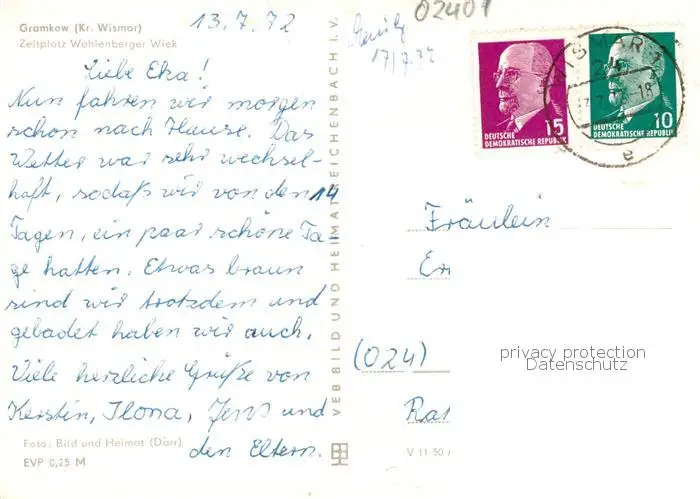 Gramkow (Kr. Wismar)
Zeltplatz Wohlenberger Wiek
13.7.72
Liebe Eka!
Nun fahren wir morgen
schon nach Hause. Das
Wetter war sehr wechsel-
haft, sodaß wir von den 14
Tagen, ein paar schöne Ta
ge hatten. Etwas braun
sind wir trotzdem und
gebadet haben wir auch.
Viele herzliche Grüße von
Kerstin, Ilona, Jens und
den Eltern.
Foto: Bild und Heimat (Dörr)
EVP 0,25 M
VEB BILD UND HEIMAT REICHENBACH I. V.
02401
17/7.72
15
DEUTSCHE
DEMOKRATISCHE REPUBLIK
10
DEUTSCHE
DEMOKRATISCHE REPUBLIK
WISMAR 1
24
-18
e
Fräulein
(024)
privacy protection
Datenschutz
V 11 50